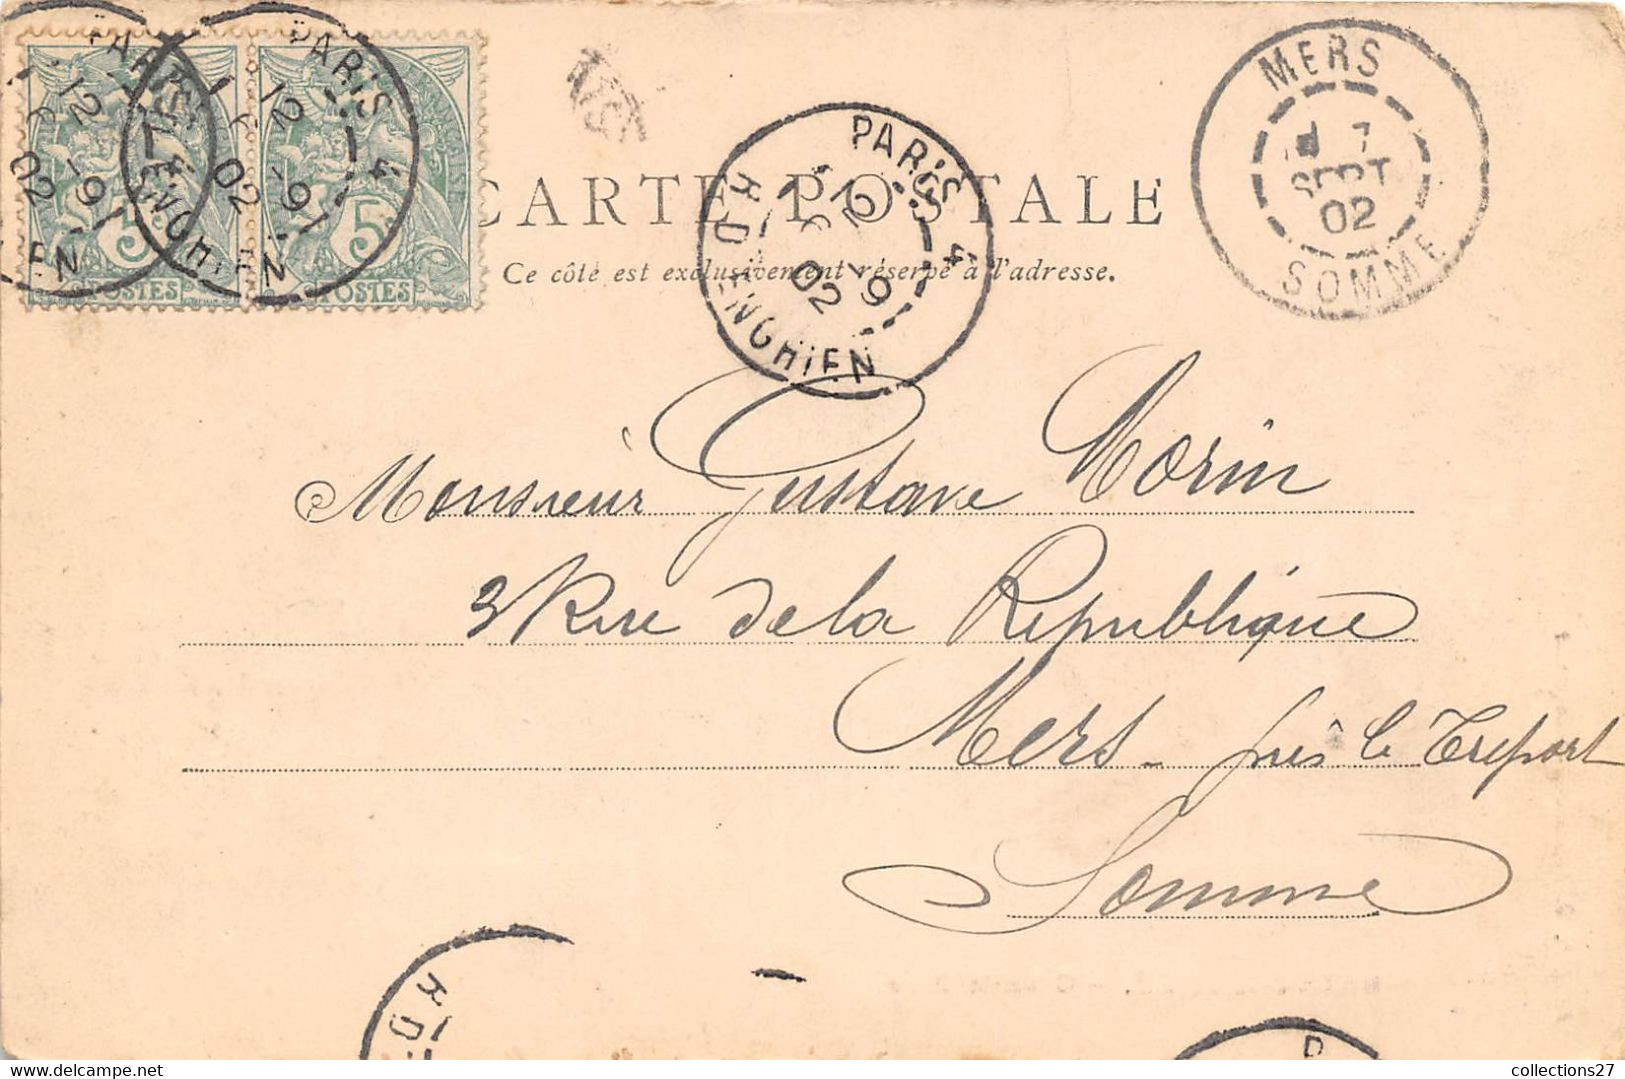 PARIS 4
12
6 -9
02
R. D'ENGHIEN
PARIS 4
12
6 -9
02
R. D'ENGHIEN
5
POSTES
5
POSTES
CARTE POSTALE
Ce côté est exclusivement réservé à l'adresse.
PARIS 4
12
6 -9
02
R. D'ENGHIEN
MERS
7
SEPT
02
SOMME
Monsieur Gustave Morin
3 Rue de la République
Mers - près le Treport
Somme
R. D
P
collections27